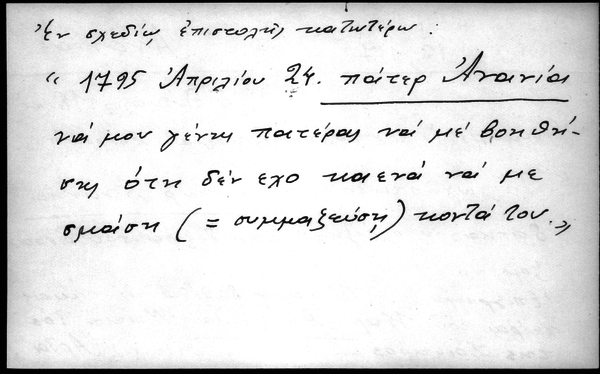 Ἐν σχεδίῳ ἐπιστολῆς κατωτέρω:
« 1795 Ἀπριλίου 24. πάτερ Ἀνανία
νά μου γένης πατέρας νά μέ βοηθή-
σης ότη δέν εχο κаενά νά με
σμάση (= συμμαζεύσῃ) κοντά του.»